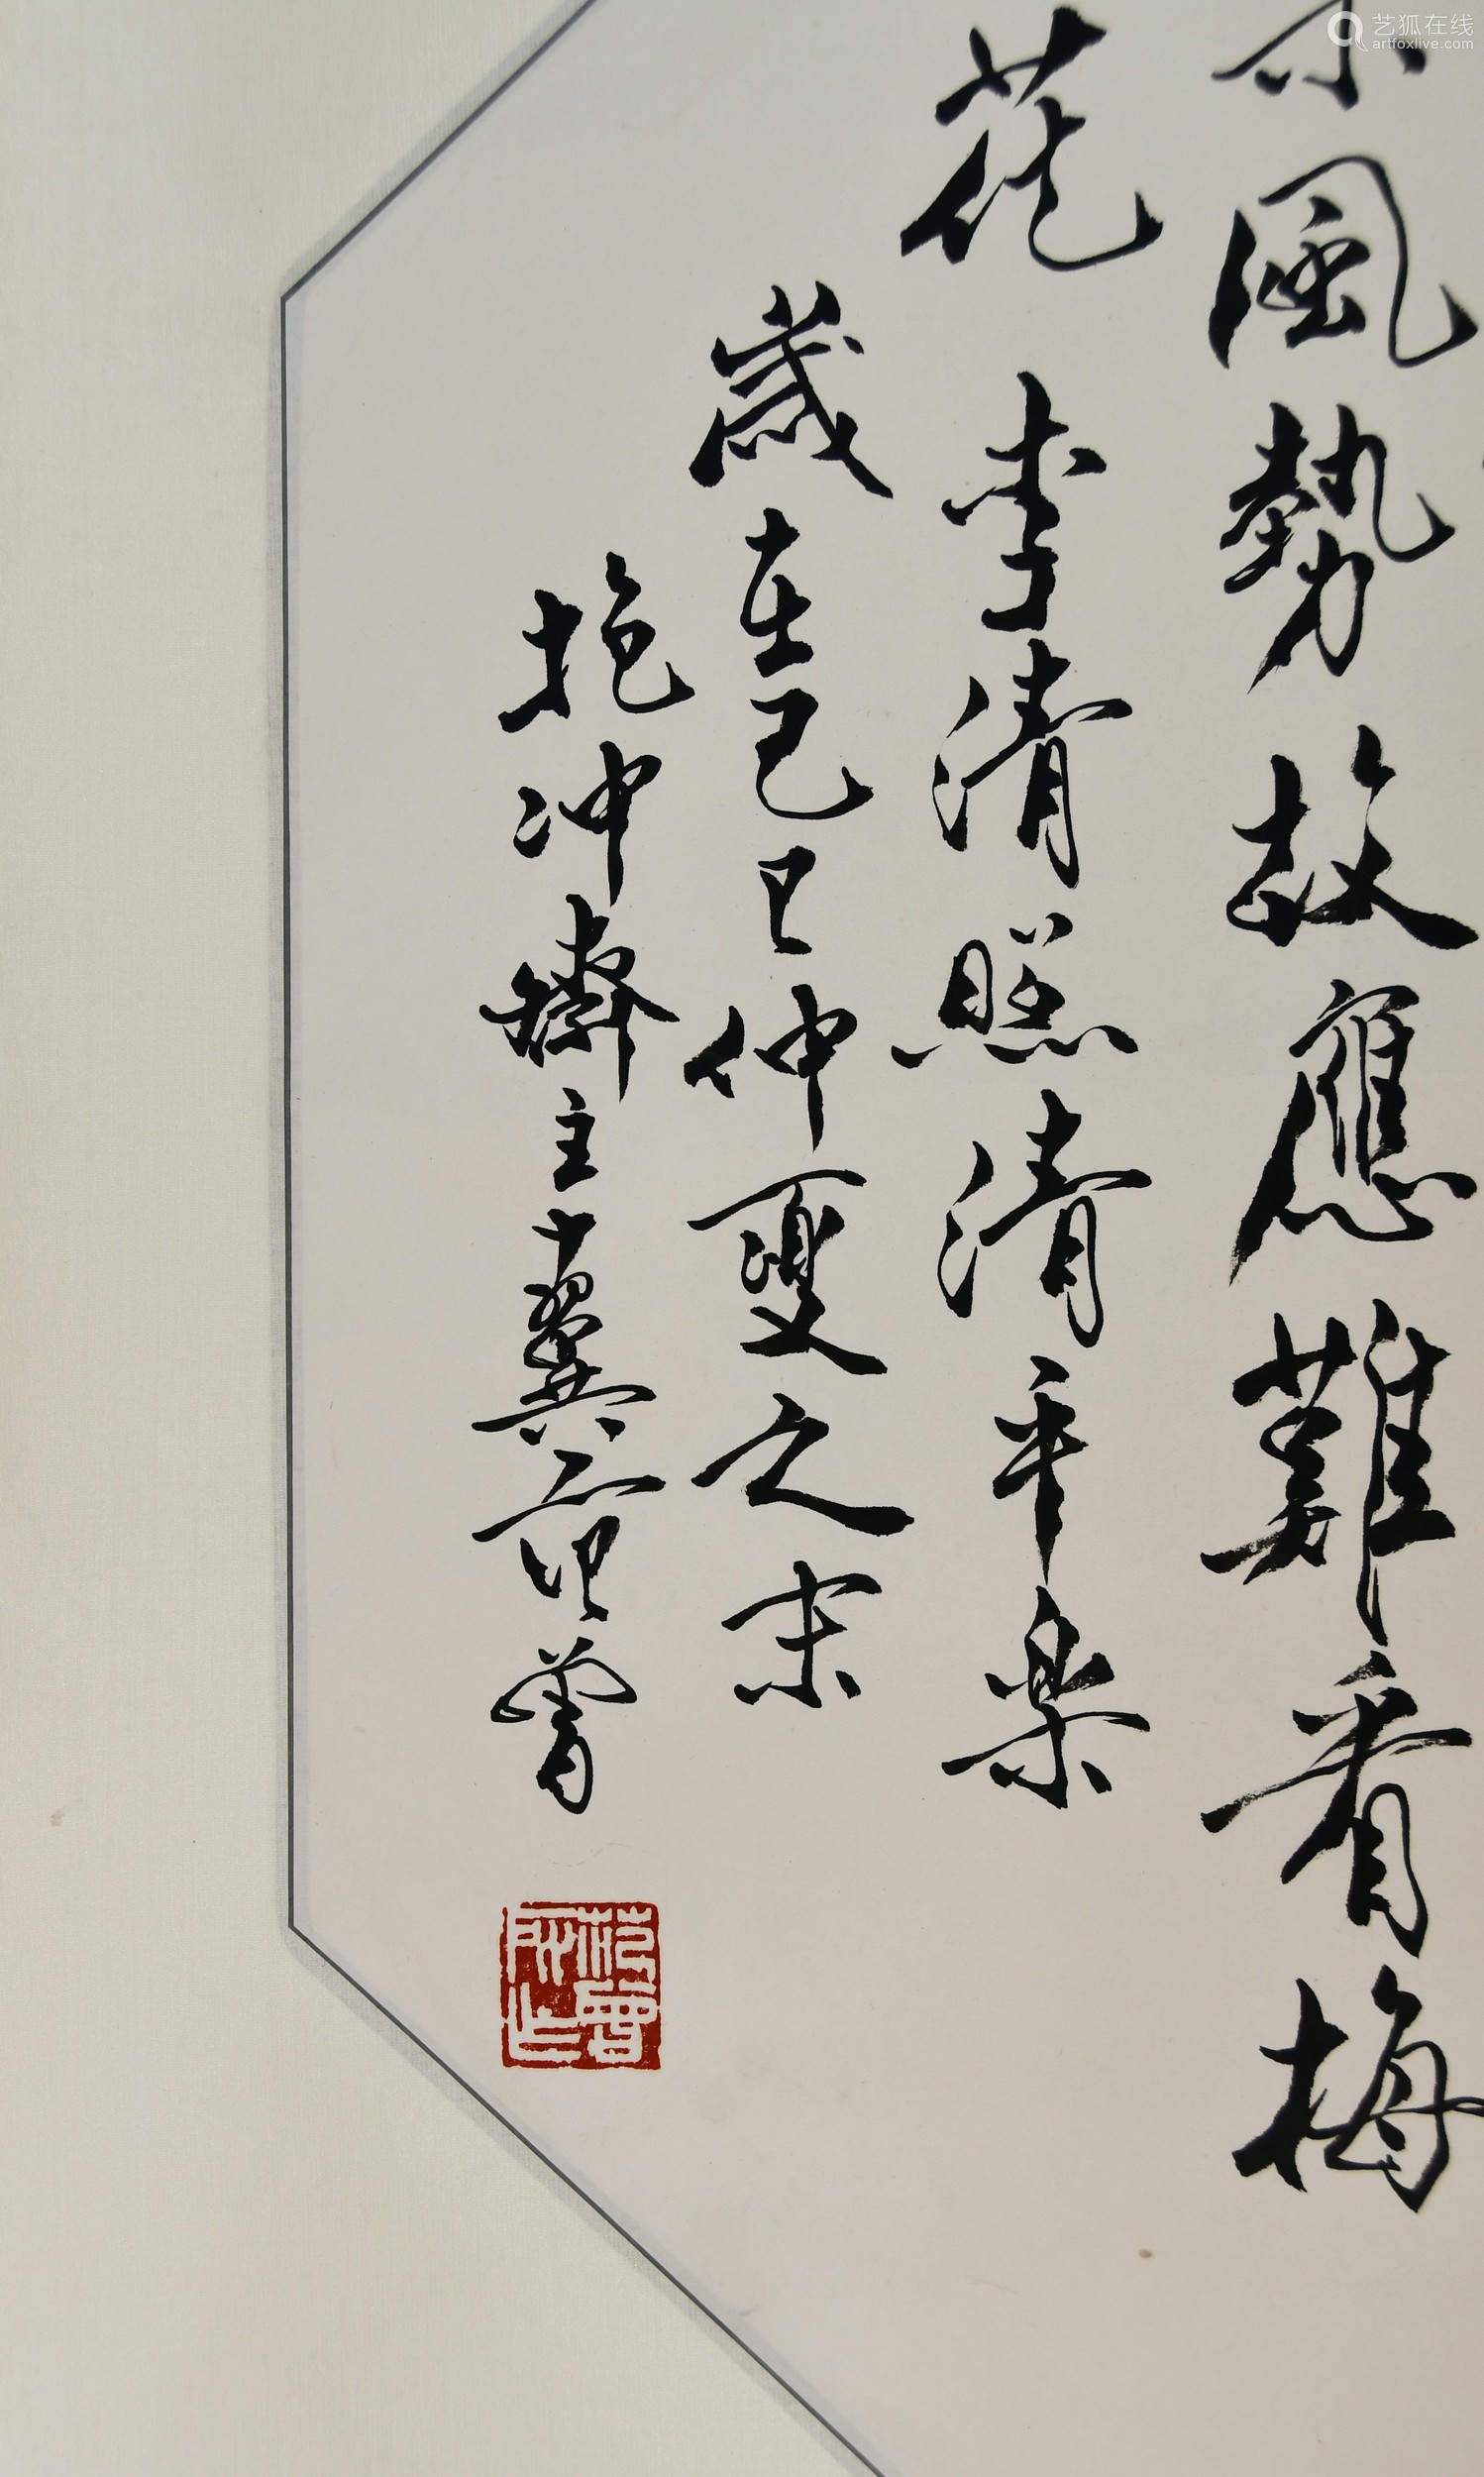 來風勢故應難看梅
花 李清照清平樂
歲在己巳仲夏之末
抱冲齋主十翼范曾
艺狐在线
artfoxlive.com